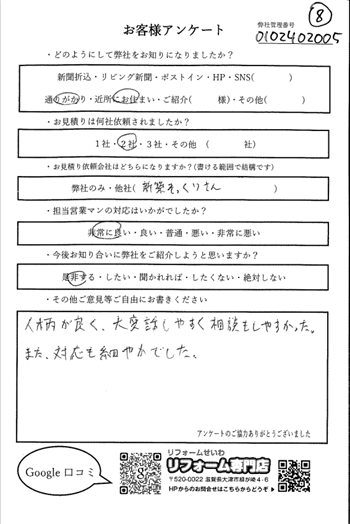 ⑧
お客様アンケート
弊社管理番号
0102402005
・どのようにして弊社をお知りになりましたか?
新聞折込・リビング新聞・ポストイン・HP・SNS( )
通りがかり・近所にお住まい・ご紹介( 様)・その他( )
・お見積りは何社依頼されましたか?
1社・2社・3社・その他 ( 社)
・お見積り依頼会社はどちらになりますか?(書ける範囲で結構です)
弊社のみ・他社( 新築そっくりさん )
・担当営業マンの対応はいかがでしたか?
非常に良い・良い・普通・悪い・非常に悪い
・今後お知り合いに弊社をご紹介しようと思いますか?
是非する・したい・聞かれれば・したくない・絶対しない
・その他ご意見等ご自由にお書きください
人柄が良く、大変話しやすく相談もしやすかった。
また、対応も細やかでした。
アンケートのご協力ありがとうございました
Google 口コミ
リフォームせいわ
リフォーム専門店
〒520-0022 滋賀県大津市柳が崎4-6
HPからのお問合せはこちらからどうぞ